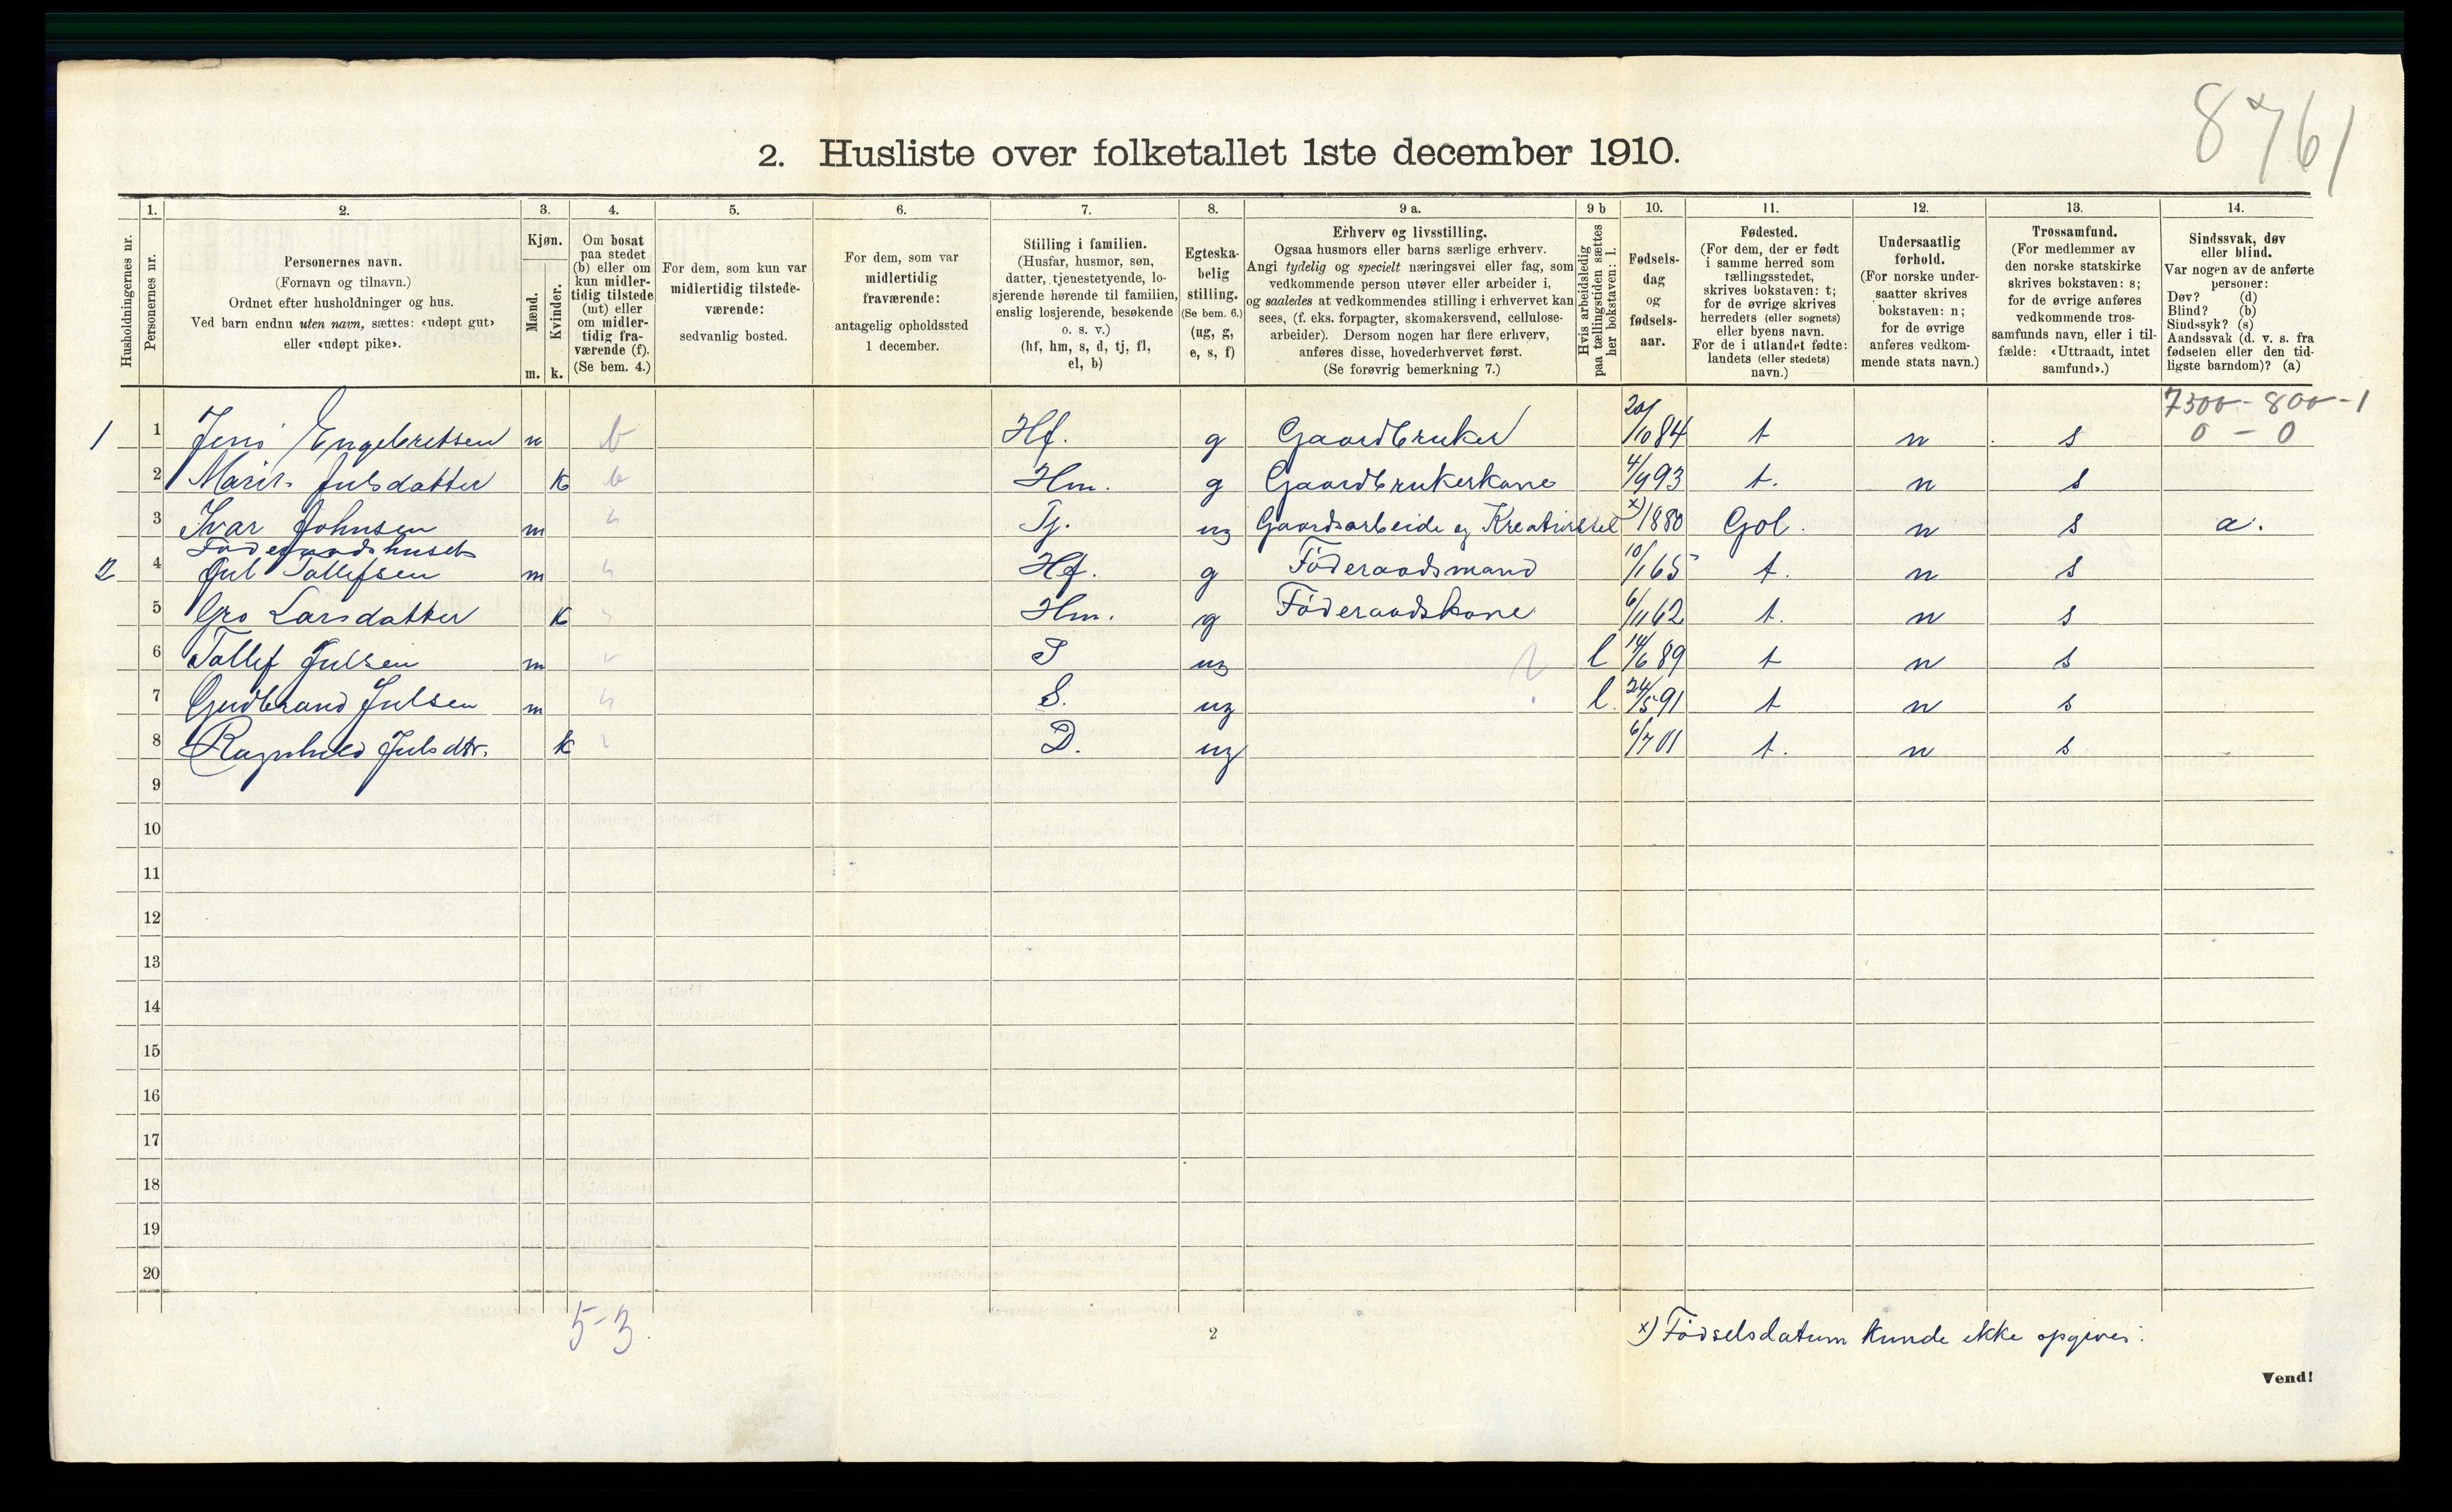 8761
2. Husliste over folketallet 1ste december 1910.
Husholdningernes nr.
1.
Personernes nr.
2.
Personernes navn.
(Fornavn og tilnavn.)
Ordnet efter husholdninger og hus.
Ved barn endnu uten navn, sættes: «udøpt gut»
eller «udøpt pike».
3.
Kjøn.
Mænd.
Kvinder.
m. k.
4.
Om bosat
paa stedet
(b) eller om
kun midler-
tidig tilstede
(mt) eller
om midler-
tidig fra-
værende (f).
(Se bem. 4.)
5.
For dem, som kun var
midlertidig tilstede-
værende:
sedvanlig bosted.
6.
For dem, som var
midlertidig
fraværende:
antagelig opholdssted
1 december.
7.
Stilling i familien.
(Husfar, husmor, søn,
datter, tjenestetyende, lo-
sjerende hørende til familien,
enslig losjerende, besøkende
o. s. v.)
(hf, hm, s, d, tj, fl,
el, b)
8.
Egteska-
belig
stilling.
(Se bem. 6.)
(ug, g,
e, s, f)
9 a.
Erhverv og livsstilling.
Ogsaa husmors eller barns særlige erhverv.
Angi tydelig og specielt næringsvei eller fag, som
vedkommende person utøver eller arbeider i,
og saaledes at vedkommendes stilling i erhvervet kan
sees, (f. eks. forpagter, skomakersvend, cellulose-
arbeider). Dersom nogen har flere erhverv,
anføres disse, hovederhvervet først.
(Se forøvrig bemerkning 7.)
9 b
Hvis arbeidsledig
paa tællingstiden sættes
her bokstaven: l.
10.
Fødsels-
dag
og
fødsels-
aar.
11.
Fødested.
(For dem, der er født
i samme herred som
tællingsstedet,
skrives bokstaven: t;
for de øvrige skrives
herredets (eller sognets)
eller byens navn.
For de i utlandet fødte:
landets (eller stedets)
navn.)
12.
Undersaatlig
forhold.
(For norske under-
saatter skrives
bokstaven: n;
for de øvrige
anføres vedkom-
mende stats navn.)
13.
Trossamfund.
(For medlemmer av
den norske statskirke
skrives bokstaven: s;
for de øvrige anføres
vedkommende tros-
samfunds navn, eller i til-
fælde: «Uttraadt, intet
samfund».)
14.
Sindssvak, døv
eller blind.
Var nogen av de anførte
personer:
Døv? (d)
Blind? (b)
Sindssyk? (s)
Aandssvak (d. v. s. fra
fødselen eller den tid-
ligste barndom)? (a)
7300 - 800 - 1
0 - 0
1 1 Jens Engebretsen m b Hf. g Gaardbruker 20/10 84 t n s
2 Marit Julsdatter k b Hm. g Gaardbrukerkone 4/9 93 t. n s
3 Ivar Johnsen m Tj. ug Gaardsarbeide og Kreaturstel x) 1880 Gol. n s a.
Föderaadshuset
2 4 Jul Tollefsen m Hf. g Föderaadsmand 10/1 65 t. n s
5 Gro Larsdatter k Hm. g Föderaadskone 6/11 62 t. n s
6 Tollef Julsen m S ug l 14/6 89 t n s
7 Gudbrand Julsen m S. ug l. 24/5 91 t n s
8 Ragnhild Julsdtr. k D. ug 6/7 01 t. n s
9
10
11
12
13
14
15
16
17
18
19
20
5-3.
2
x) Födselsdatum kunde ikke opgives.
Vend!